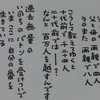 父と母の両親
そのまた両親
こうして数えてゆくと
十代前で千二十四
二十代前では
なんと百万人を越すんです
過去無量の
いのちのバトンを受けつ
いまここに自分の番を